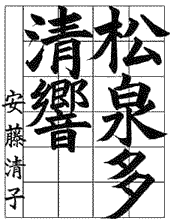 松泉多
清響
安藤清子